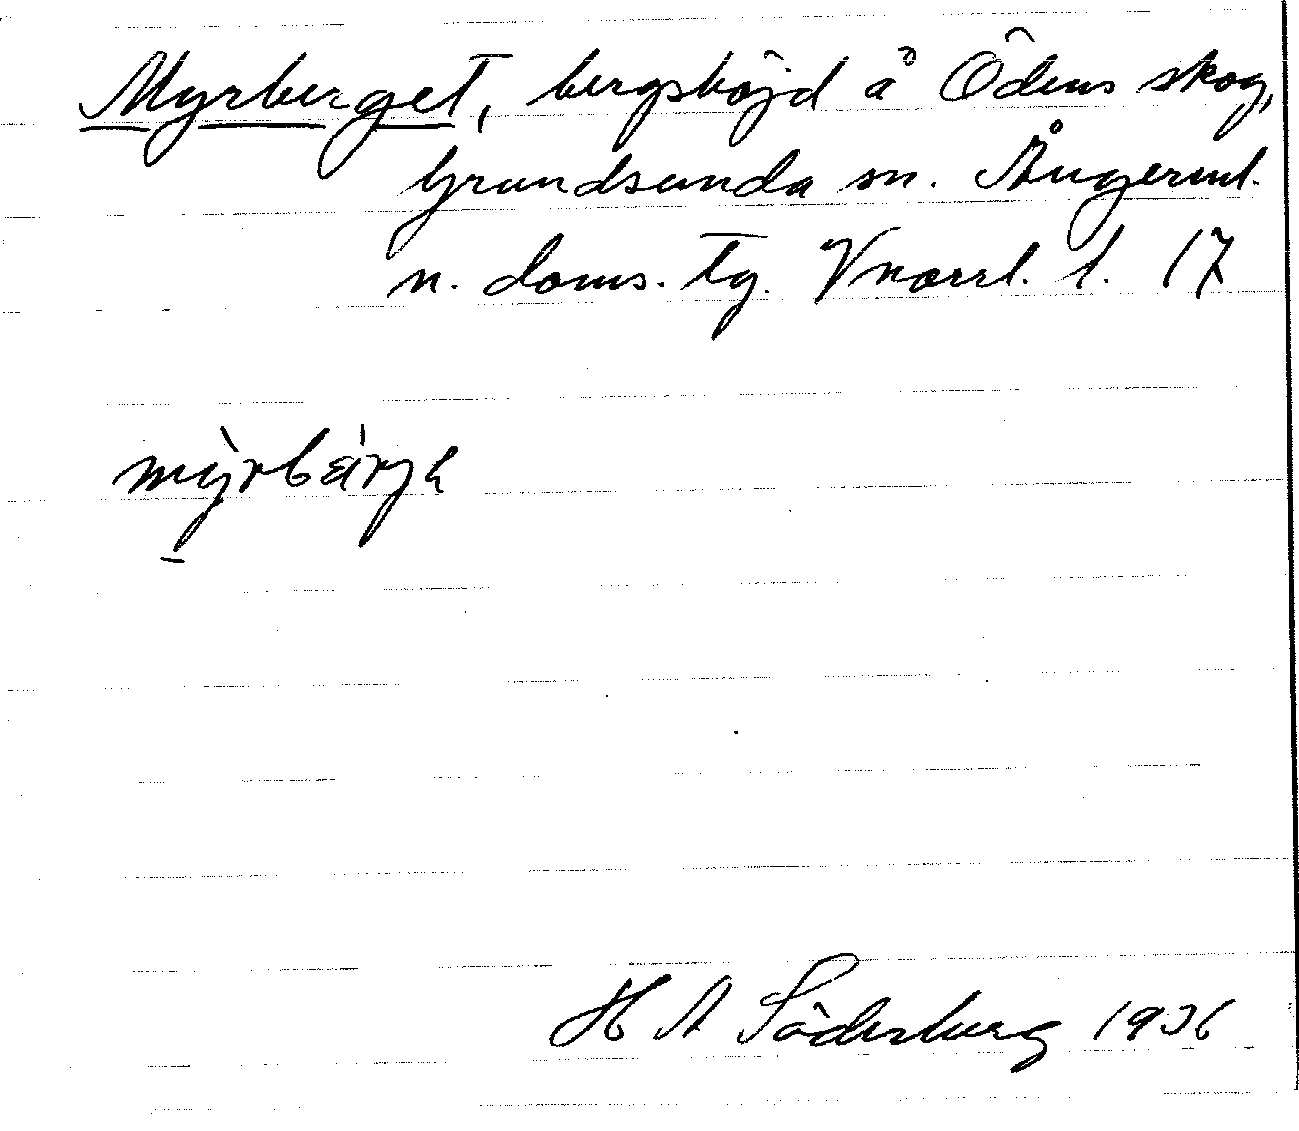 Myrberget, bergshöjd å Ödens skog,
Grundsunda sn. Ångerml.
n. doms. tg. Vnorrl. l. 17
mỳrbärjɂ
H A Söderberg 1936